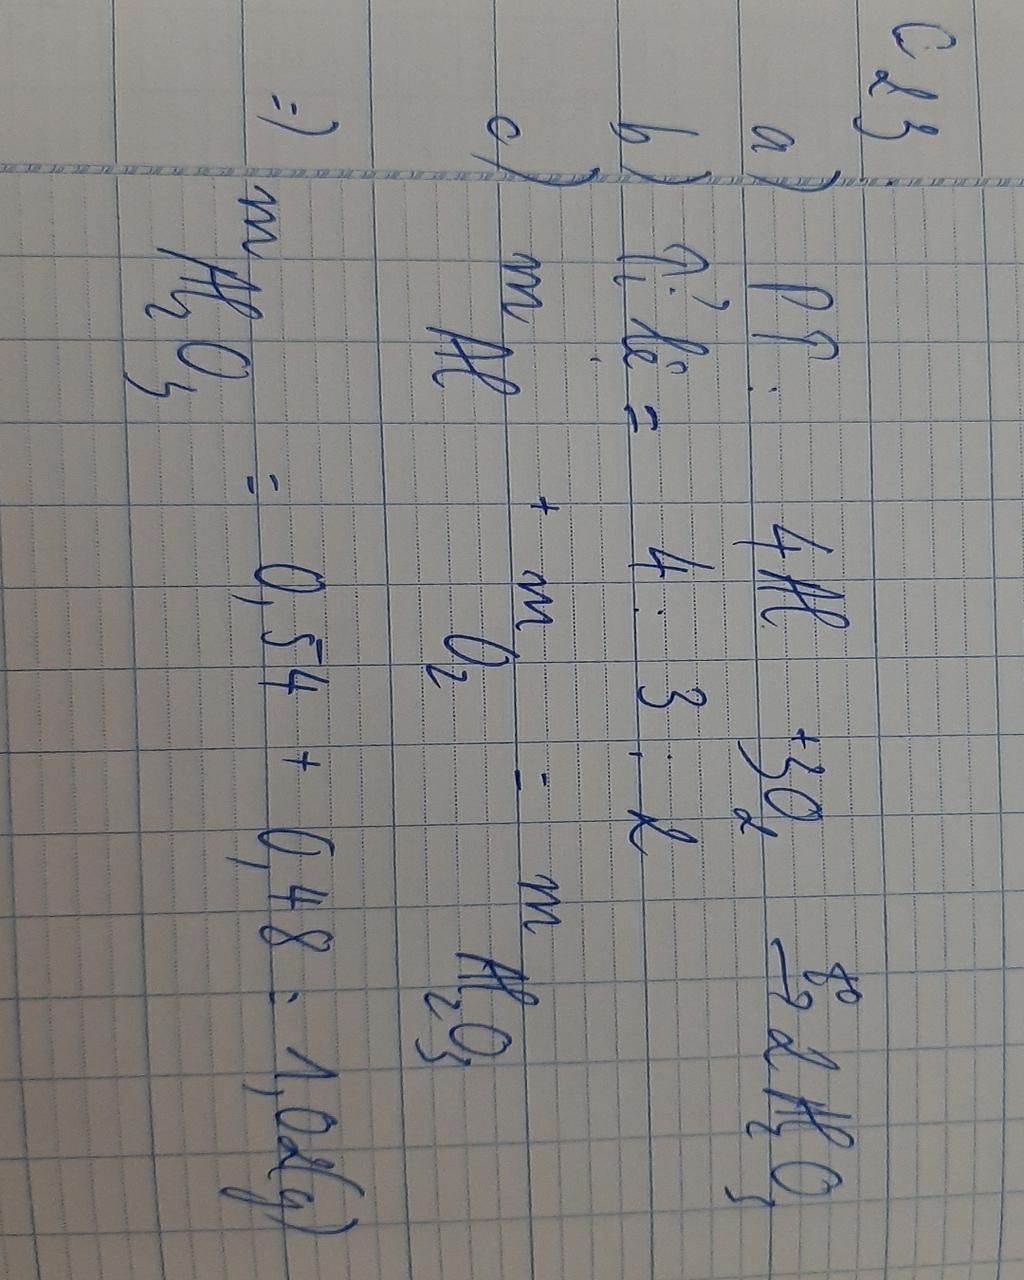 C23
a) PT: 4Al + 3O2 t° → 2Al2O3
b) Tỉ lệ = 4 : 3 : 2
c) mAl + mO2 = mAl2O3
=) mAl2O3 = 0,54 + 0,48 = 1,02(g)